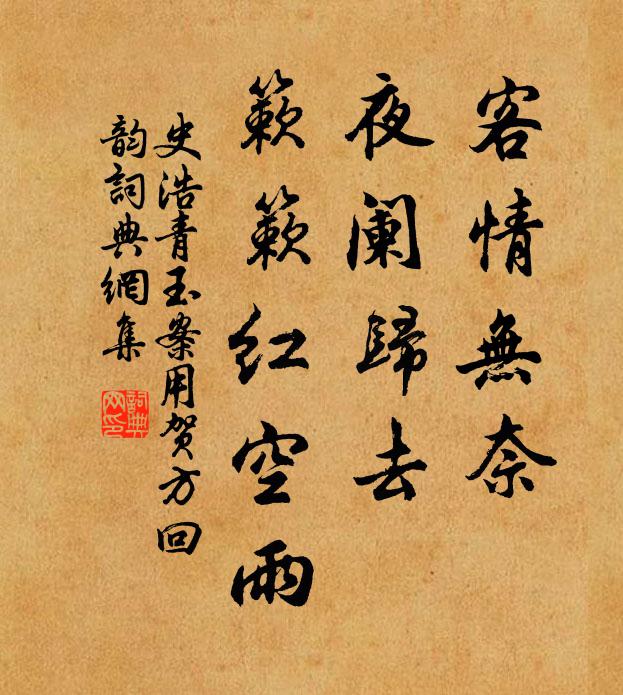 客情無奈
夜阑歸去
簌簌紅空雨
史浩青玉案用贺方回
韵詞典網集
詞典网印